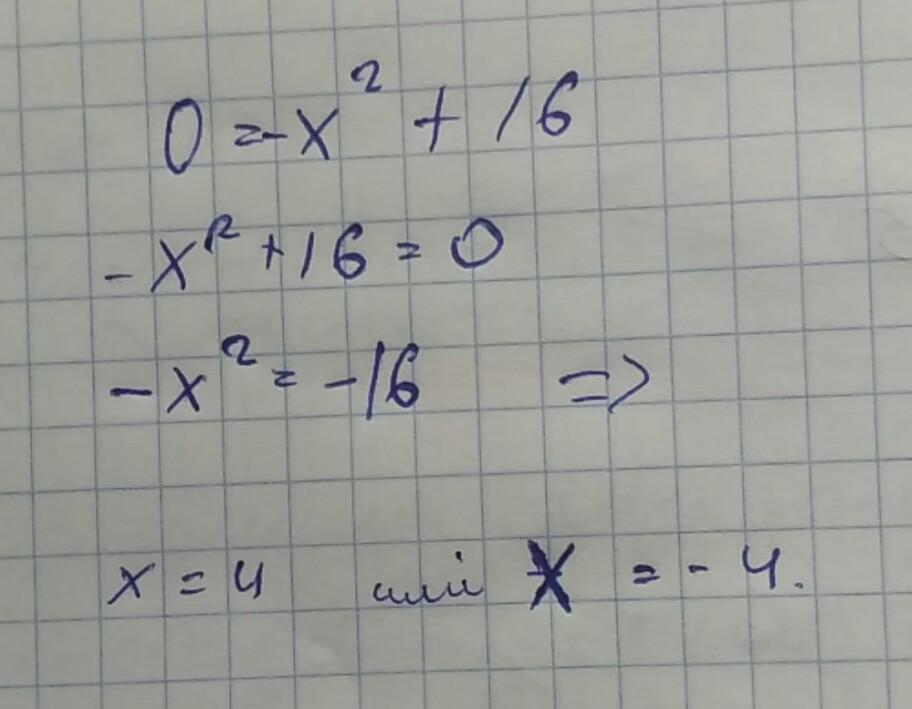 0 = -x² + 16
-x² + 16 = 0
-x² = -16 =>
x = 4 или x = -4.